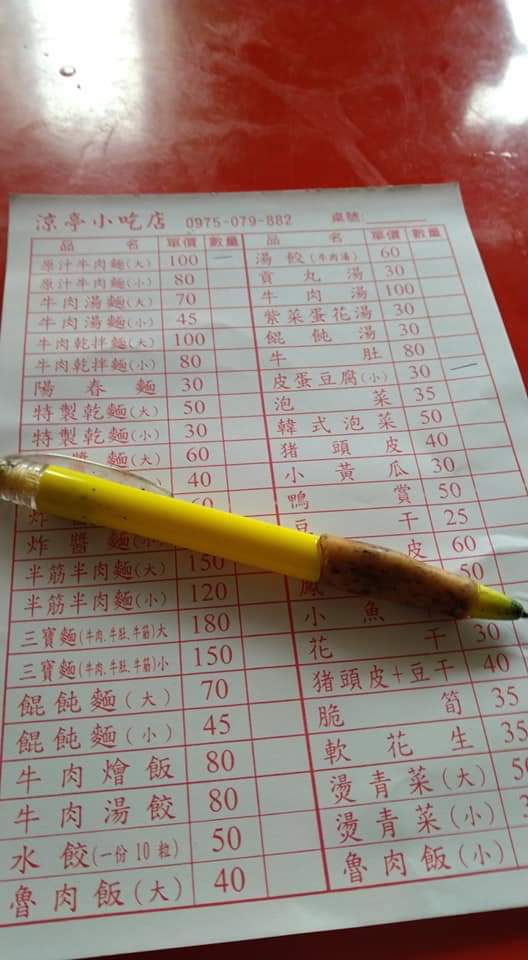 涼亭小吃店 0975-079-882 桌號
品名 單價 數量 品名 單價 數量
原汁牛肉麵(大) 100 一 湯餃(牛肉湯) 60
原汁牛肉麵(小) 80 貢丸湯 30
牛肉湯麵(大) 70 牛肉湯 100
牛肉湯麵(小) 45 紫菜蛋花湯 30
牛肉乾拌麵(大) 100 餛飩湯 30
牛肉乾拌麵(小) 80 牛肚 80
陽春麵 30 皮蛋豆腐(小) 30 一
特製乾麵(大) 50 泡菜 35
特製乾麵(小) 30 韓式泡菜 50
醬麵(大) 60 豬頭皮 40
40 小黃瓜 30
60 鴨賞 50
炸醬麵 豆干 25
半筋半肉麵(大) 150 皮 60
半筋半肉麵(小) 120 50
三寶麵(牛肉、牛肚、牛筋)大 180 小魚
三寶麵(牛肉、牛肚、牛筋)小 150 花干 30
餛飩麵(大) 70 豬頭皮+豆干 40
餛飩麵(小) 45 脆筍 35
牛肉燴飯 80 軟花生 35
牛肉湯餃 80 燙青菜(大)
水餃(一份10粒) 50 燙青菜(小)
魯肉飯(大) 40 魯肉飯(小)